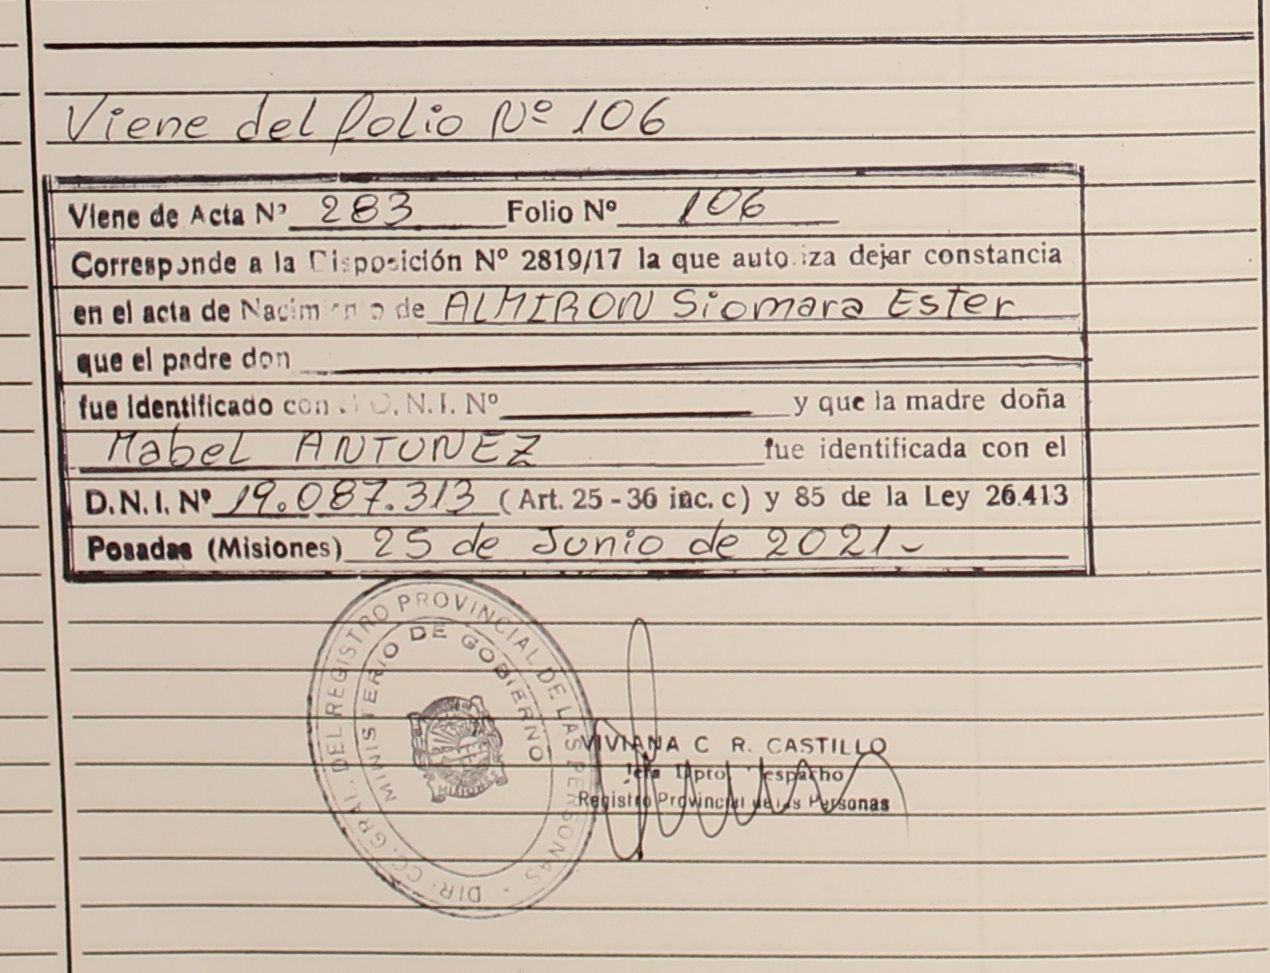 Viene del folio Nº 106
Viene de Acta Nº 283 Folio Nº 106
Corresponde a la Disposición Nº 2819/17 la que autoriza dejar constancia
en el acta de Nacimiento de ALMIRON Siomara Ester
que el padre don
fue identificado con el D.N.I. Nº y que la madre doña
Mabel ANTUNEZ fue identificada con el
D.N.I. Nº 19.087.313 (Art. 25 - 36 inc. c) y 85 de la Ley 26.413
Posadas (Misiones) 25 de Junio de 2021.-
DIR. CC. GRAL. DEL REGISTRO PROVINCIAL DE LAS PERSONAS
MINISTERIO DE GOBIERNO
MISIONES
VIVIANA C R. CASTILLO
Jefa Dpto. Despacho
Registro Provincial de las Personas